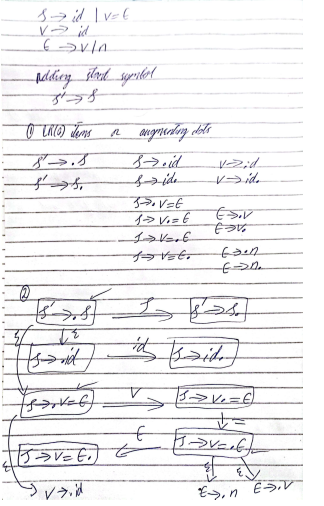 S → id | V=E
V → id
E → V/n
Adding start symbol
S' → S
① LR(0) items or augmenting dots
S' → .S S → .id V → .id
S' → S. S → id. V → id.
S → .V=E
S → V.=E E → .V
S → V=.E E → V.
S → V=E. E → .n
E → n.
②
S' → .S S S' → S.
ε ε
S → .id id S → id.
S → .V=E V S → V.=E
=
S → V=E. E S → V=.E
ε ε ε
V → .id E → .n E → .V